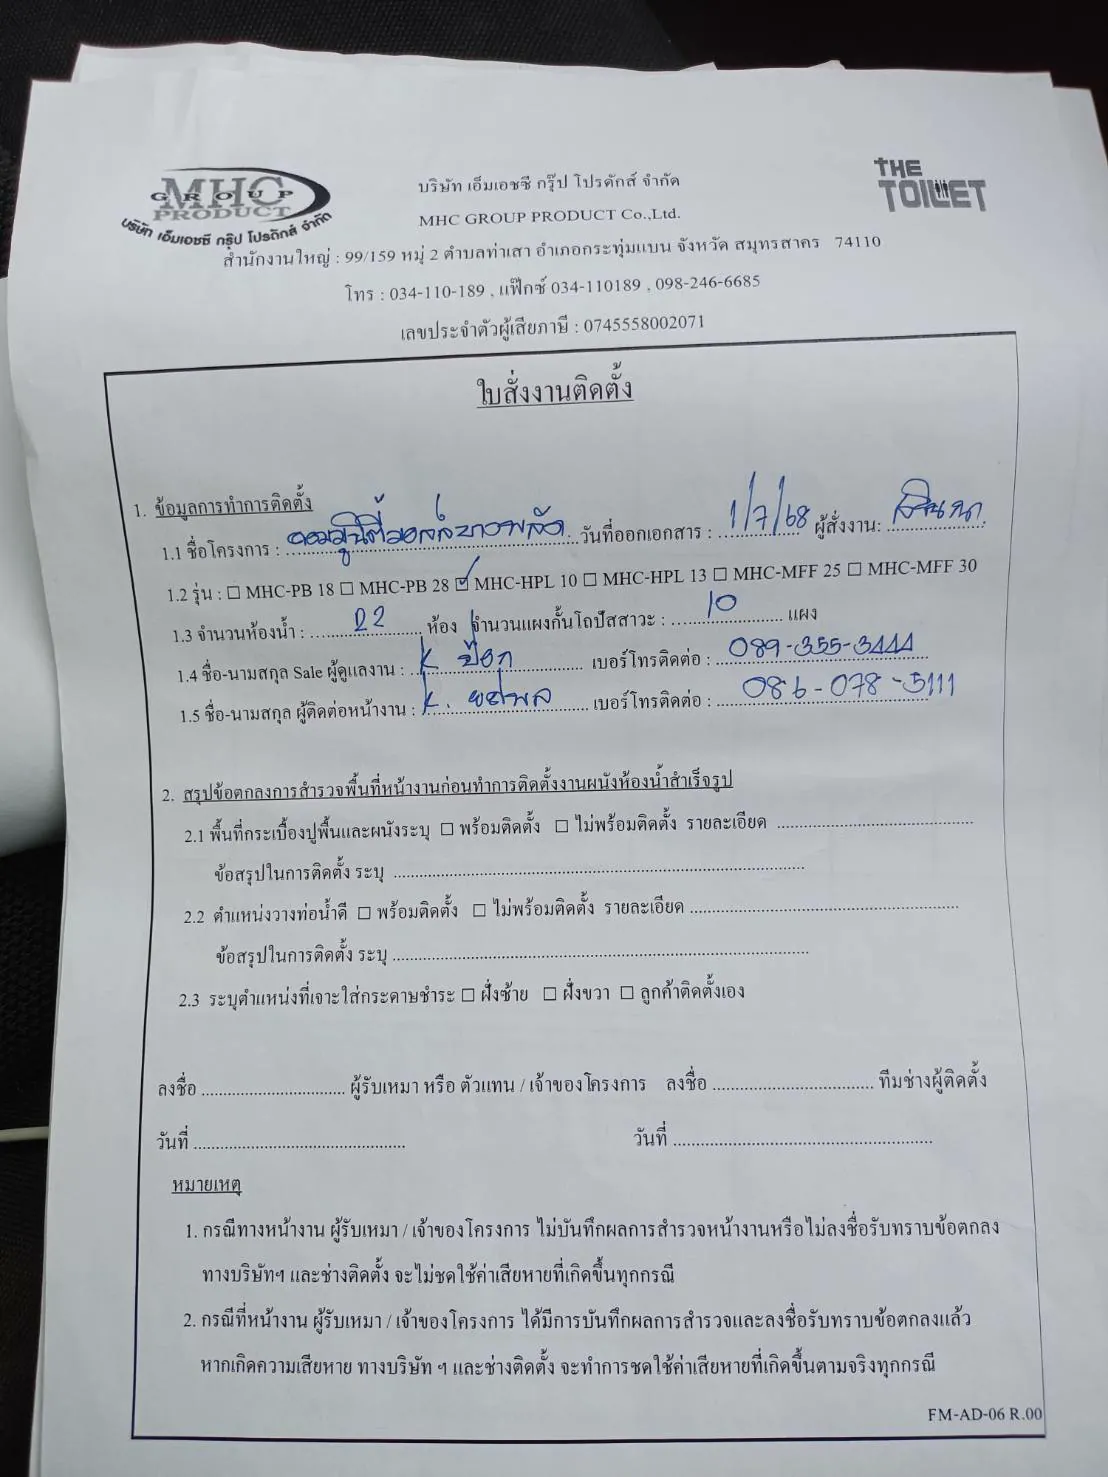 MHC
GROUP
PRODUCT
บริษัท เอ็มเอชซี กรุ๊ป โปรดักส์ จำกัด
THE
TOILET
บริษัท เอ็มเอชซี กรุ๊ป โปรดักส์ จำกัด
MHC GROUP PRODUCT Co.,Ltd.
สำนักงานใหญ่ : 99/159 หมู่ 2 ตำบลท่าเสา อำเภอกระทุ่มแบน จังหวัด สมุทรสาคร 74110
โทร : 034-110-189 , แฟ๊กซ์ 034-110189 , 098-246-6685
เลขประจำตัวผู้เสียภาษี : 0745558002071
ใบสั่งงานติดตั้ง
1. ข้อมูลการทำการติดตั้ง
1.1 ชื่อโครงการ : คอมมูนิตี้มอลล์บางพลัด วันที่ออกเอกสาร : 1/7/68 ผู้สั่งงาน:
1.2 รุ่น : ☐ MHC-PB 18 ☐ MHC-PB 28 ☑ MHC-HPL 10 ☐ MHC-HPL 13 ☐ MHC-MFF 25 ☐ MHC-MFF 30
1.3 จำนวนห้องน้ำ : 22 ห้อง จำนวนแผงกั้นโถปัสสาวะ : 10 แผง
1.4 ชื่อ-นามสกุล Sale ผู้ดูแลงาน : K ป๊อก เบอร์โทรติดต่อ : 089-355-3444
1.5 ชื่อ-นามสกุล ผู้ติดต่อหน้างาน : K. ยศพล เบอร์โทรติดต่อ : 086-078-5111
2. สรุปข้อตกลงการสำรวจพื้นที่หน้างานก่อนทำการติดตั้งงานผนังห้องน้ำสำเร็จรูป
2.1 พื้นที่กระเบื้องปูพื้นและผนังระบุ ☐ พร้อมติดตั้ง ☐ ไม่พร้อมติดตั้ง รายละเอียด ........................
ข้อสรุปในการติดตั้ง ระบุ ........................
2.2 ตำแหน่งวางท่อน้ำดี ☐ พร้อมติดตั้ง ☐ ไม่พร้อมติดตั้ง รายละเอียด ........................
ข้อสรุปในการติดตั้ง ระบุ ........................
2.3 ระบุตำแหน่งที่เจาะใส่กระดาษชำระ ☐ ฝั่งซ้าย ☐ ฝั่งขวา ☐ ลูกค้าติดตั้งเอง
ลงชื่อ ........................ ผู้รับเหมา หรือ ตัวแทน / เจ้าของโครงการ ลงชื่อ ........................ ทีมช่างผู้ติดตั้ง
วันที่ ........................ วันที่ ........................
หมายเหตุ
1. กรณีทางหน้างาน ผู้รับเหมา / เจ้าของโครงการ ไม่บันทึกผลการสำรวจหน้างานหรือไม่ลงชื่อรับทราบข้อตกลง
ทางบริษัทฯ และช่างติดตั้ง จะไม่ชดใช้ค่าเสียหายที่เกิดขึ้นทุกกรณี
2. กรณีที่หน้างาน ผู้รับเหมา / เจ้าของโครงการ ได้มีการบันทึกผลการสำรวจและลงชื่อรับทราบข้อตกลงแล้ว
หากเกิดความเสียหาย ทางบริษัท ฯ และช่างติดตั้ง จะทำการชดใช้ค่าเสียหายที่เกิดขึ้นตามจริงทุกกรณี
FM-AD-06 R.00